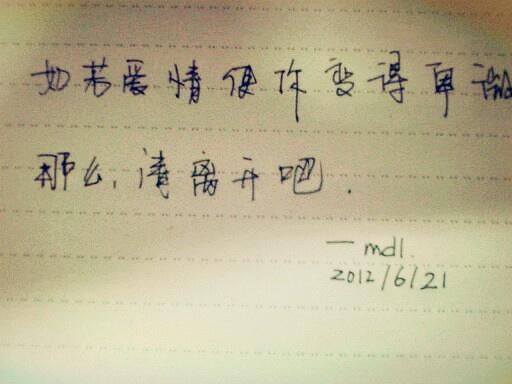 如若爱情使你变得卑
那么,请离开吧.
— mdl.
2012/6/21